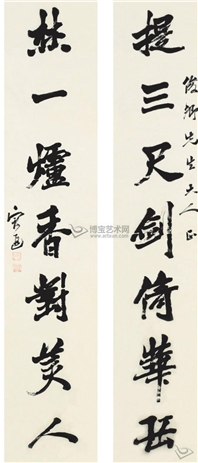 俊卿先生大人正
提三尺劍倚華岳
焚一爐香對美人
博宝艺术网